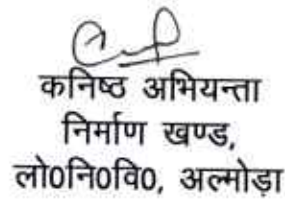 कनिष्ठ अभियन्ता
निर्माण खण्ड,
लो0नि0वि0, अल्मोड़ा